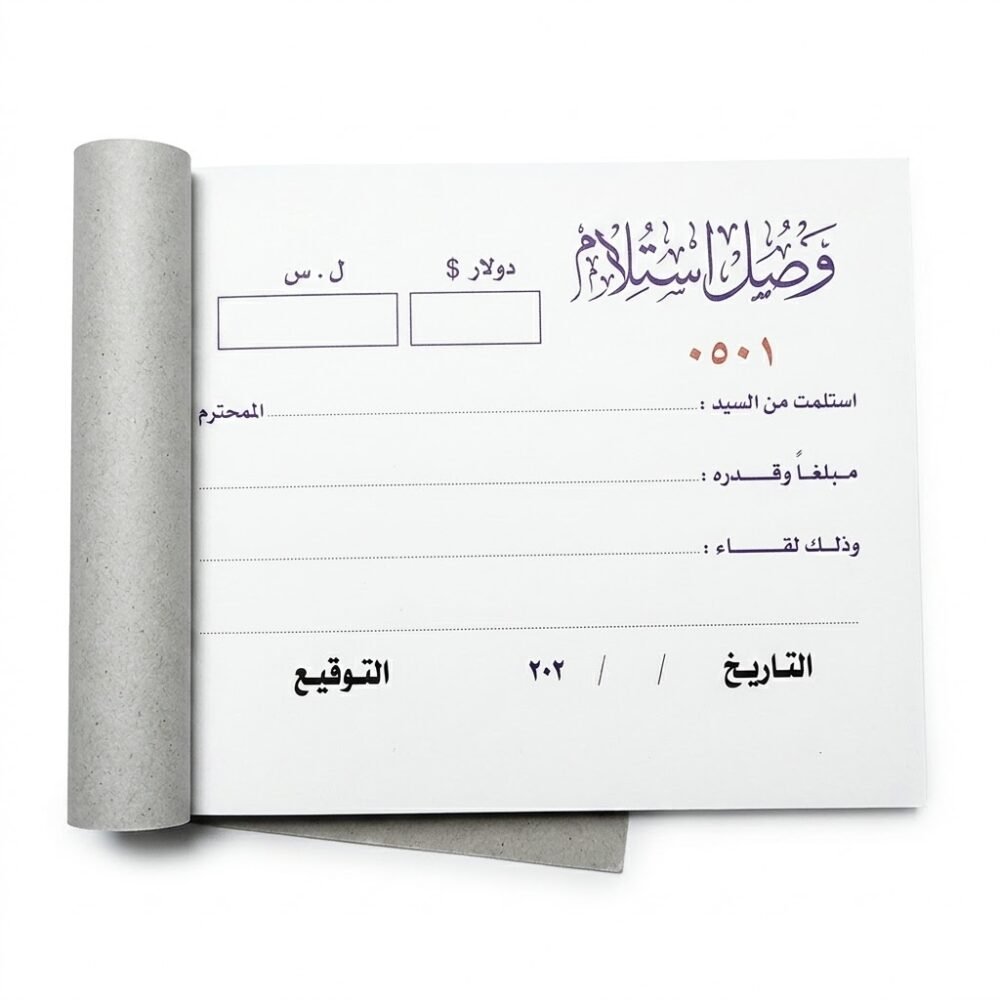 وَصْل اسْتِلَام
دولار $ ل . س
٠٥٠١
استلمت من السيد : الممحترم
مبلغاً وقدره :
وذلك لقاء :
التاريخ / / ٢٠٢ التوقيع